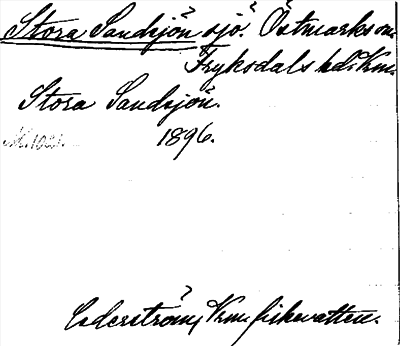 Stora Sandsjön sjö. Östmarks sn.
Fryksdals hd. Vrm.
Stora Sandsjön.
1896.
Cederström, Vrm. fiskevatten.